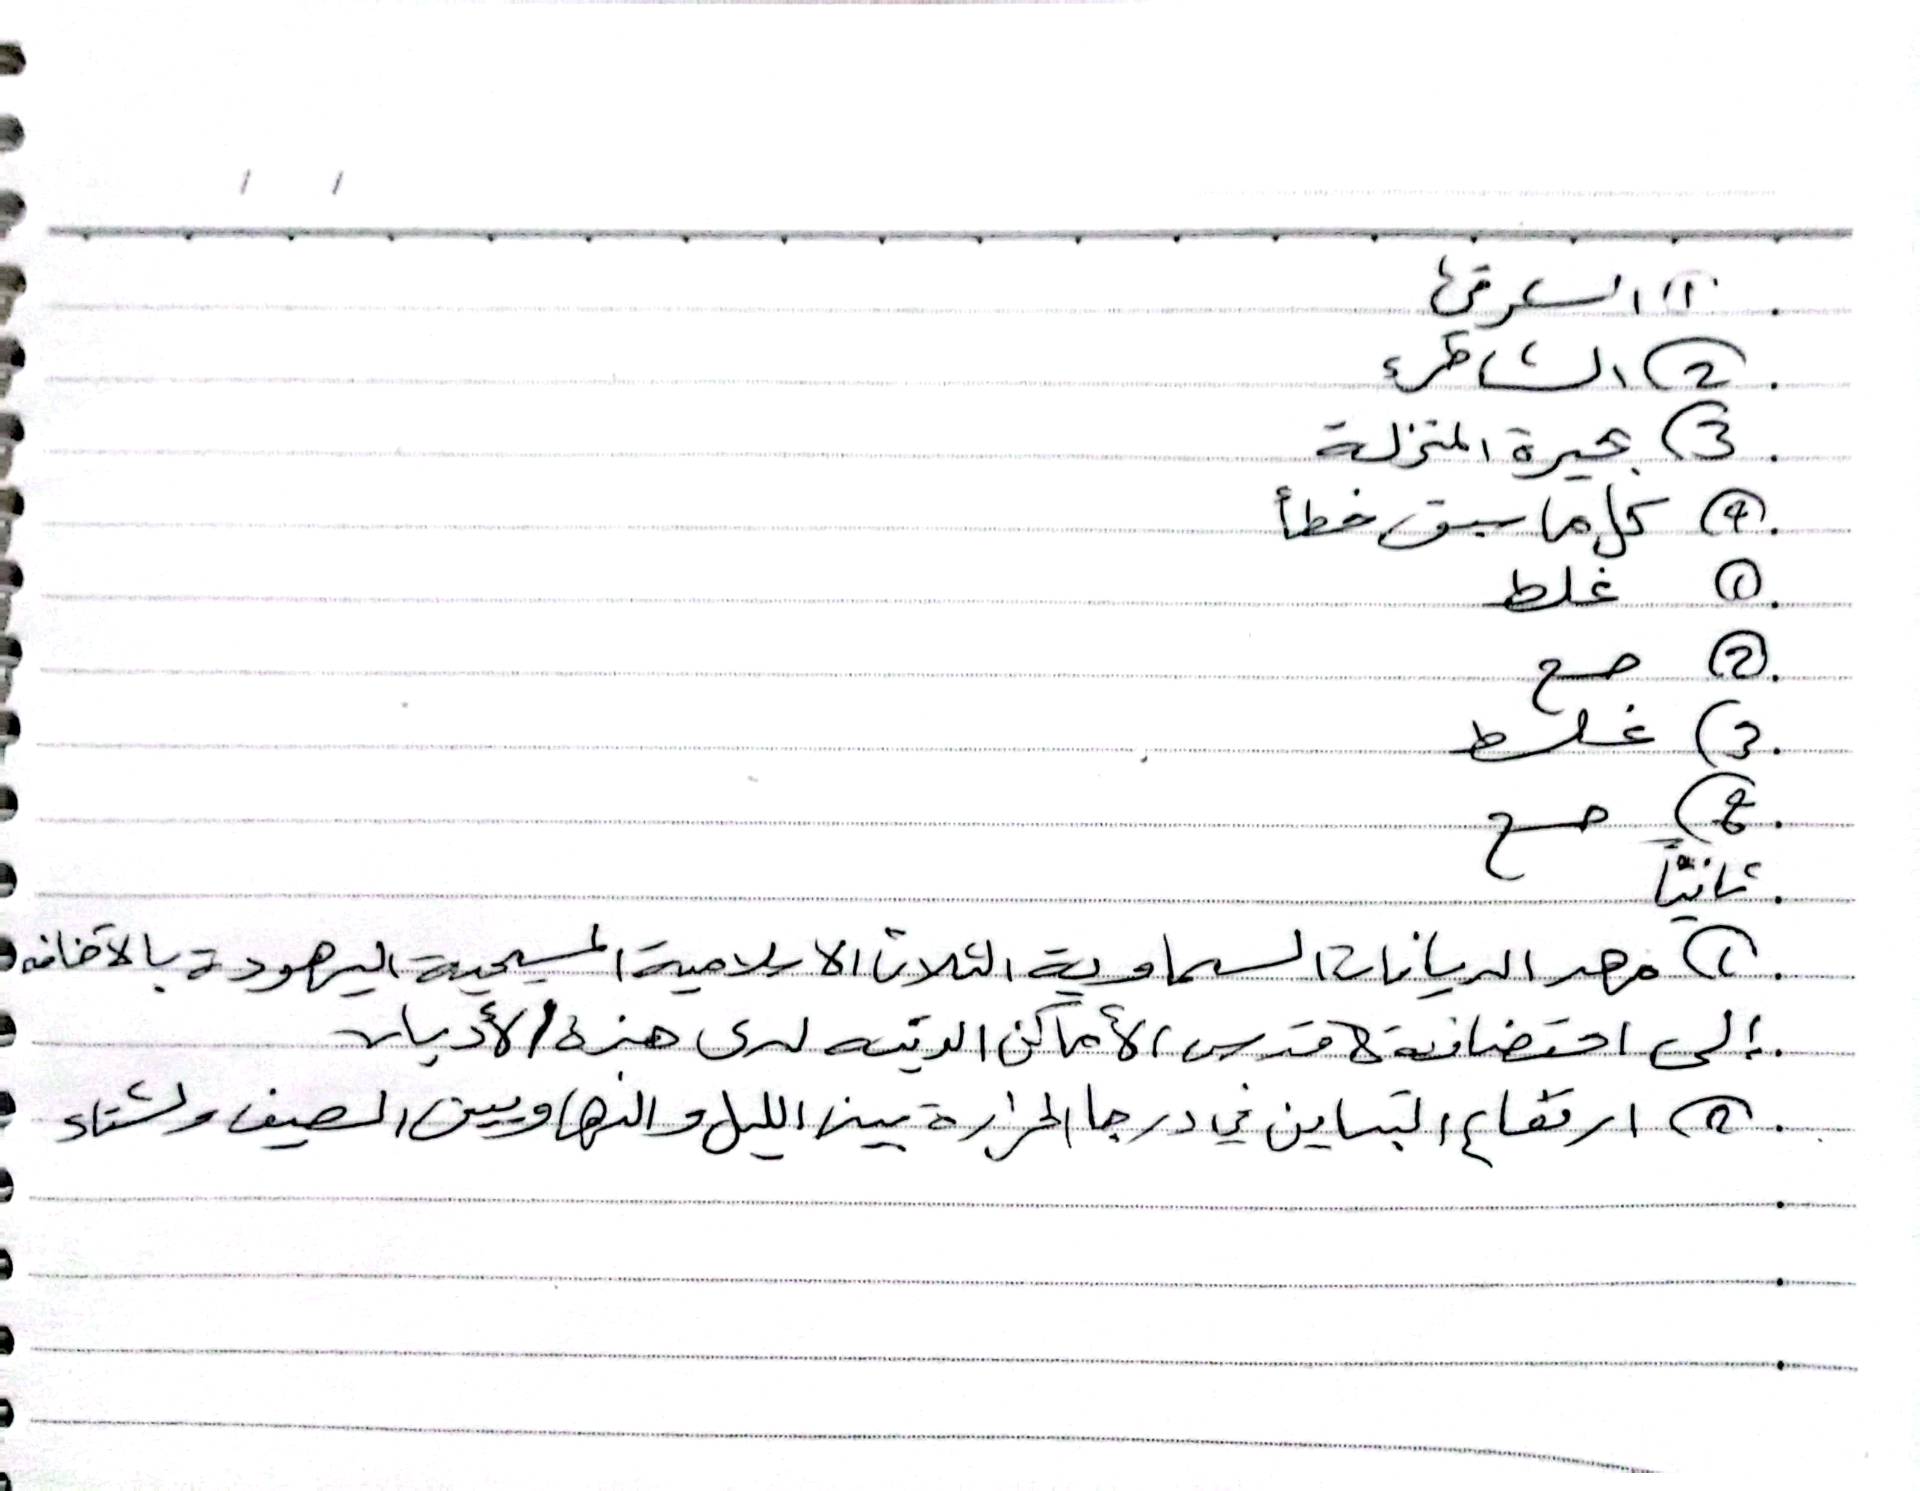 / /
(1) الشرقي
(2) الشاطئ
(3) بحيرة المنزلة
(4) كل ما سبق خطأ
(1) غلط
(2) صح
(3) غلط
(4) صح
ثانياً
(1) مهد الديانات السماوية الثلاث الاسلامية المسيحية اليهودة بالاضافه
إلى احتضانة الأماكن الدينيه لدى هذة الأديان
(2) ارتفاع التباين في درجا الحرارة بين الليل والنها وبين الصيف وشتاء